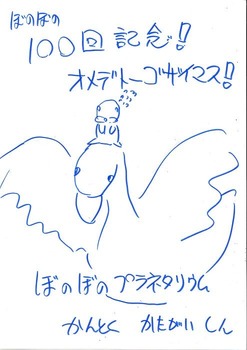 ぼのぼの
100回記念!
オメデトーゴザイマス!
ぼのぼのプラネタリウム
かんとく かたがい しん